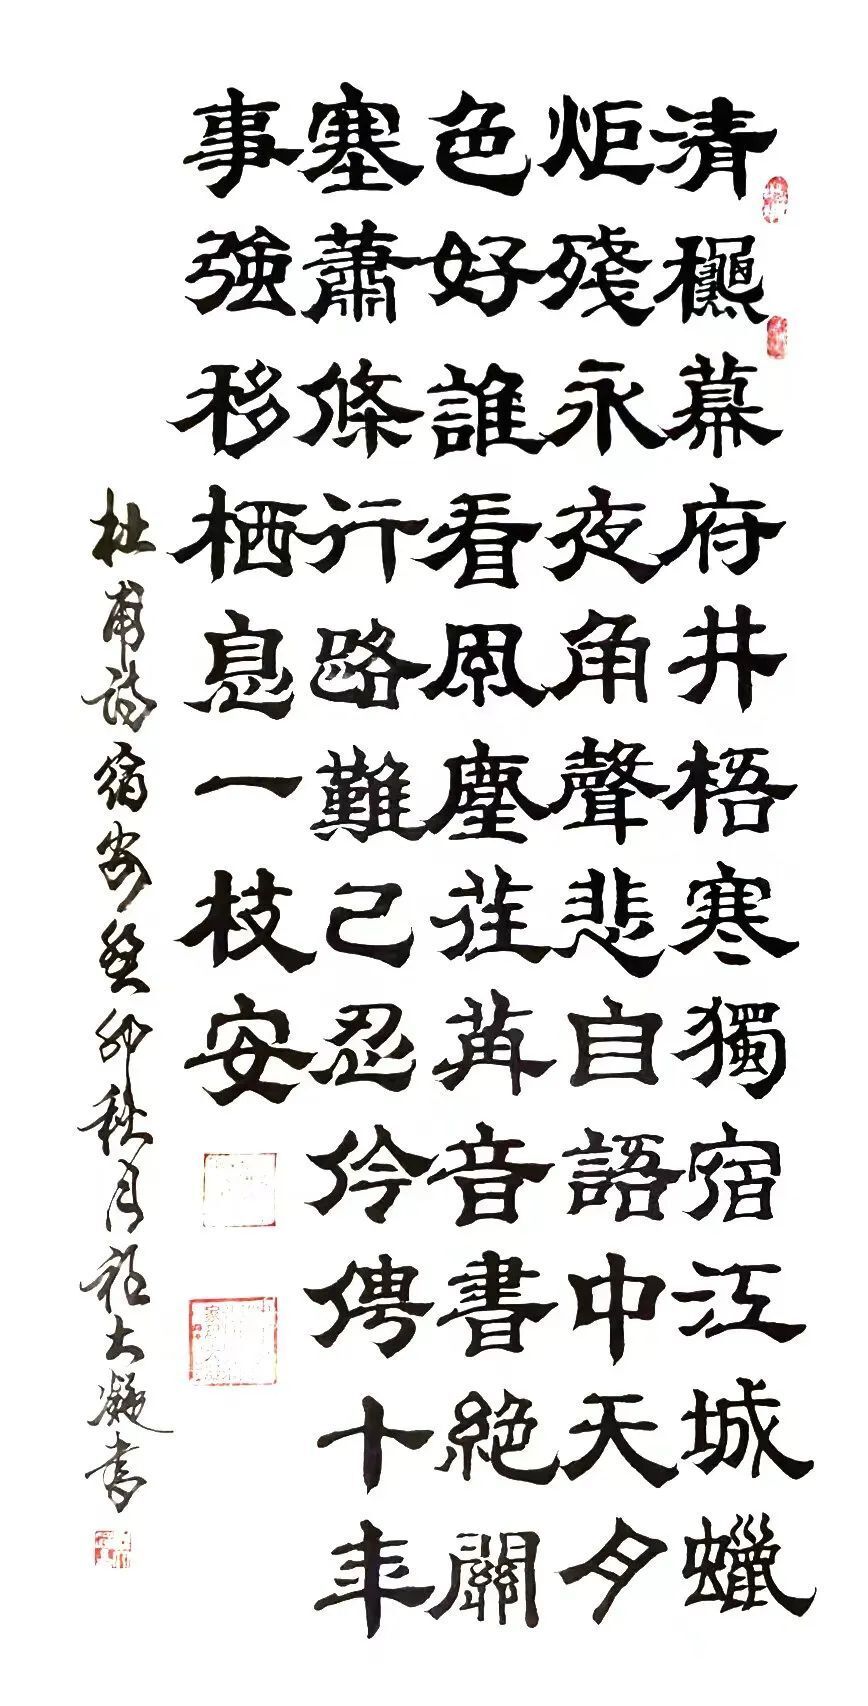 清龝幕府井梧寒獨宿江城蠟
炬殘永夜角聲悲自語中天月
色好誰看風塵荏苒音書絶關
塞蕭條行路難已忍伶俜十年
事強移栖息一枝安
杜甫詩宿府癸卯秋月大凝书